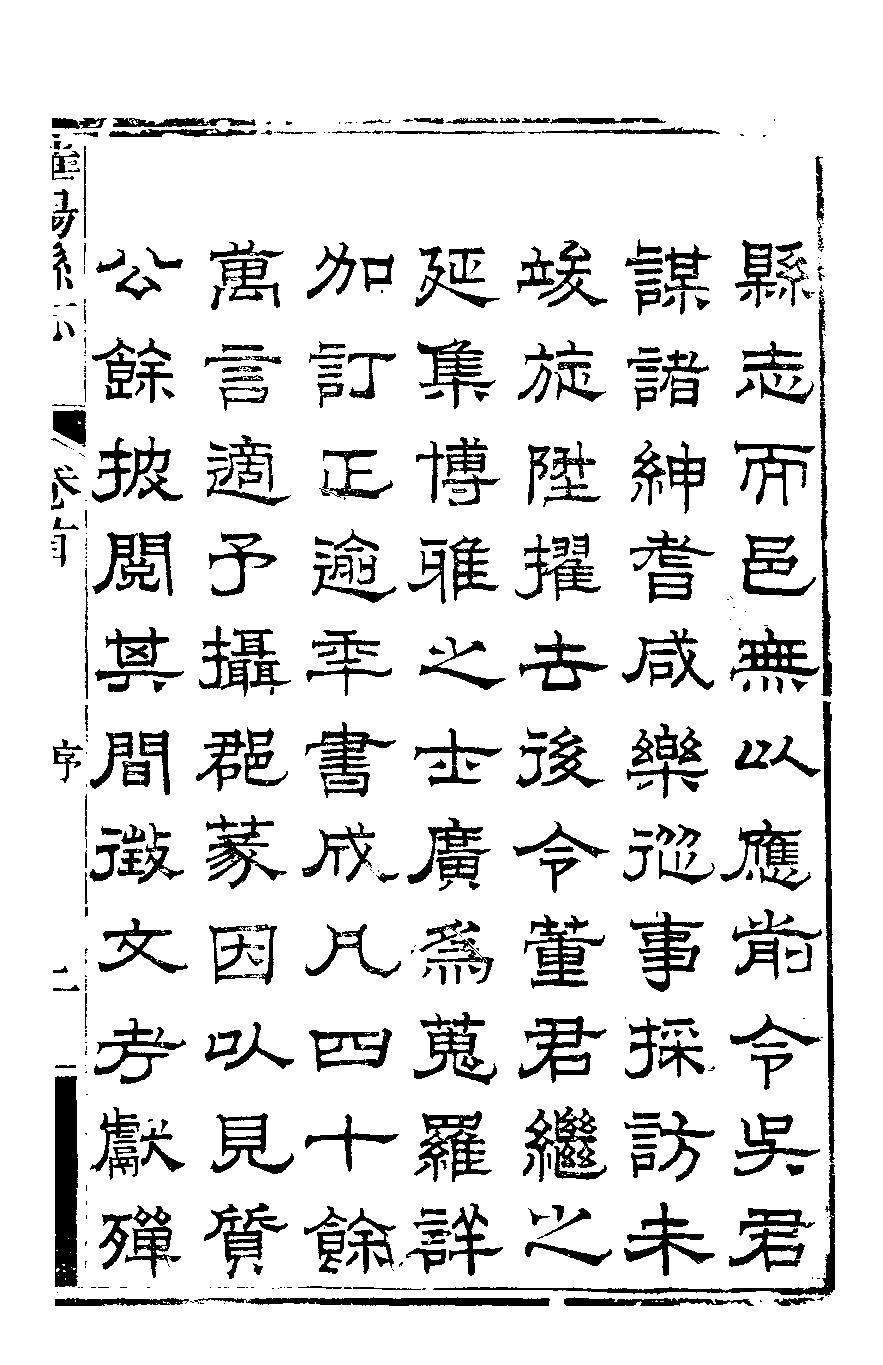 縣志而邑無以應前令吳君
謀諸紳耆咸樂從事採訪未
竣旋陞擢去後令董君繼之
延集博雅之士廣為蒐羅詳
加訂正逾年書成凡四十餘
萬言適予攝郡篆因以見質
公餘披閱其間徵文考獻殫
陽縣志
卷首
序
二